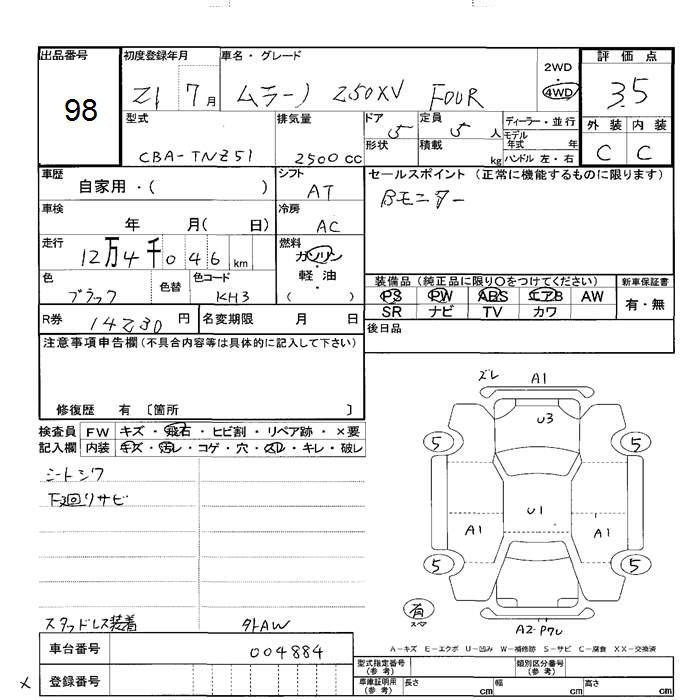 出品番号 初度登録年月 車名・グレード 2WD ・ 4WD 評価点
98 21 7月 ムラーノ 250XV FOUR 3.5
型式 排気量 ドア 5 定員 5人 ディーラー・並行 外装 内装
モデル年式 年
CBA-TNZ51 2500cc 形状 積載 kg ハンドル 左・右 C C
車歴 自家用・( ) シフト AT セールスポイント (正常に機能するものに限ります)
Bモニター
車検 年 月( 日) 冷房 AC
走行 12万4千046km 燃料 ガソリン・軽・油 ( )
色 ブラック 色替 色コード KH3
装備品 (純正品に限り○をつけてください) 新車保証書
PS PW ABS エアB AW 有・無
SR ナビ TV カワ
R券 14230円 名変期限 月 日 後日品
注意事項申告欄(不具合内容等は具体的に記入して下さい)
修復歴 有 〔箇所 〕
検査員 FW キズ・飛石・ヒビ割・リペア跡・×要
記入欄 内装 キズ・汚レ・コゲ・穴・スレ・キレ・破レ
シートシワ
下回りサビ
スタッドレス装着 外AW
ズレ A1
U3
5 5
A1 U1 A1
5 5
有
スペア
A2-P7U
A-キズ E-エクボ U-凹み W-補修跡 S-サビ C-腐食 XX-交換済
車台番号 004884
登録番号
型式指定番号(参考) 類別区分番号(参考)
車庫証明用(参考) 長さ cm 幅 cm 高さ cm
×